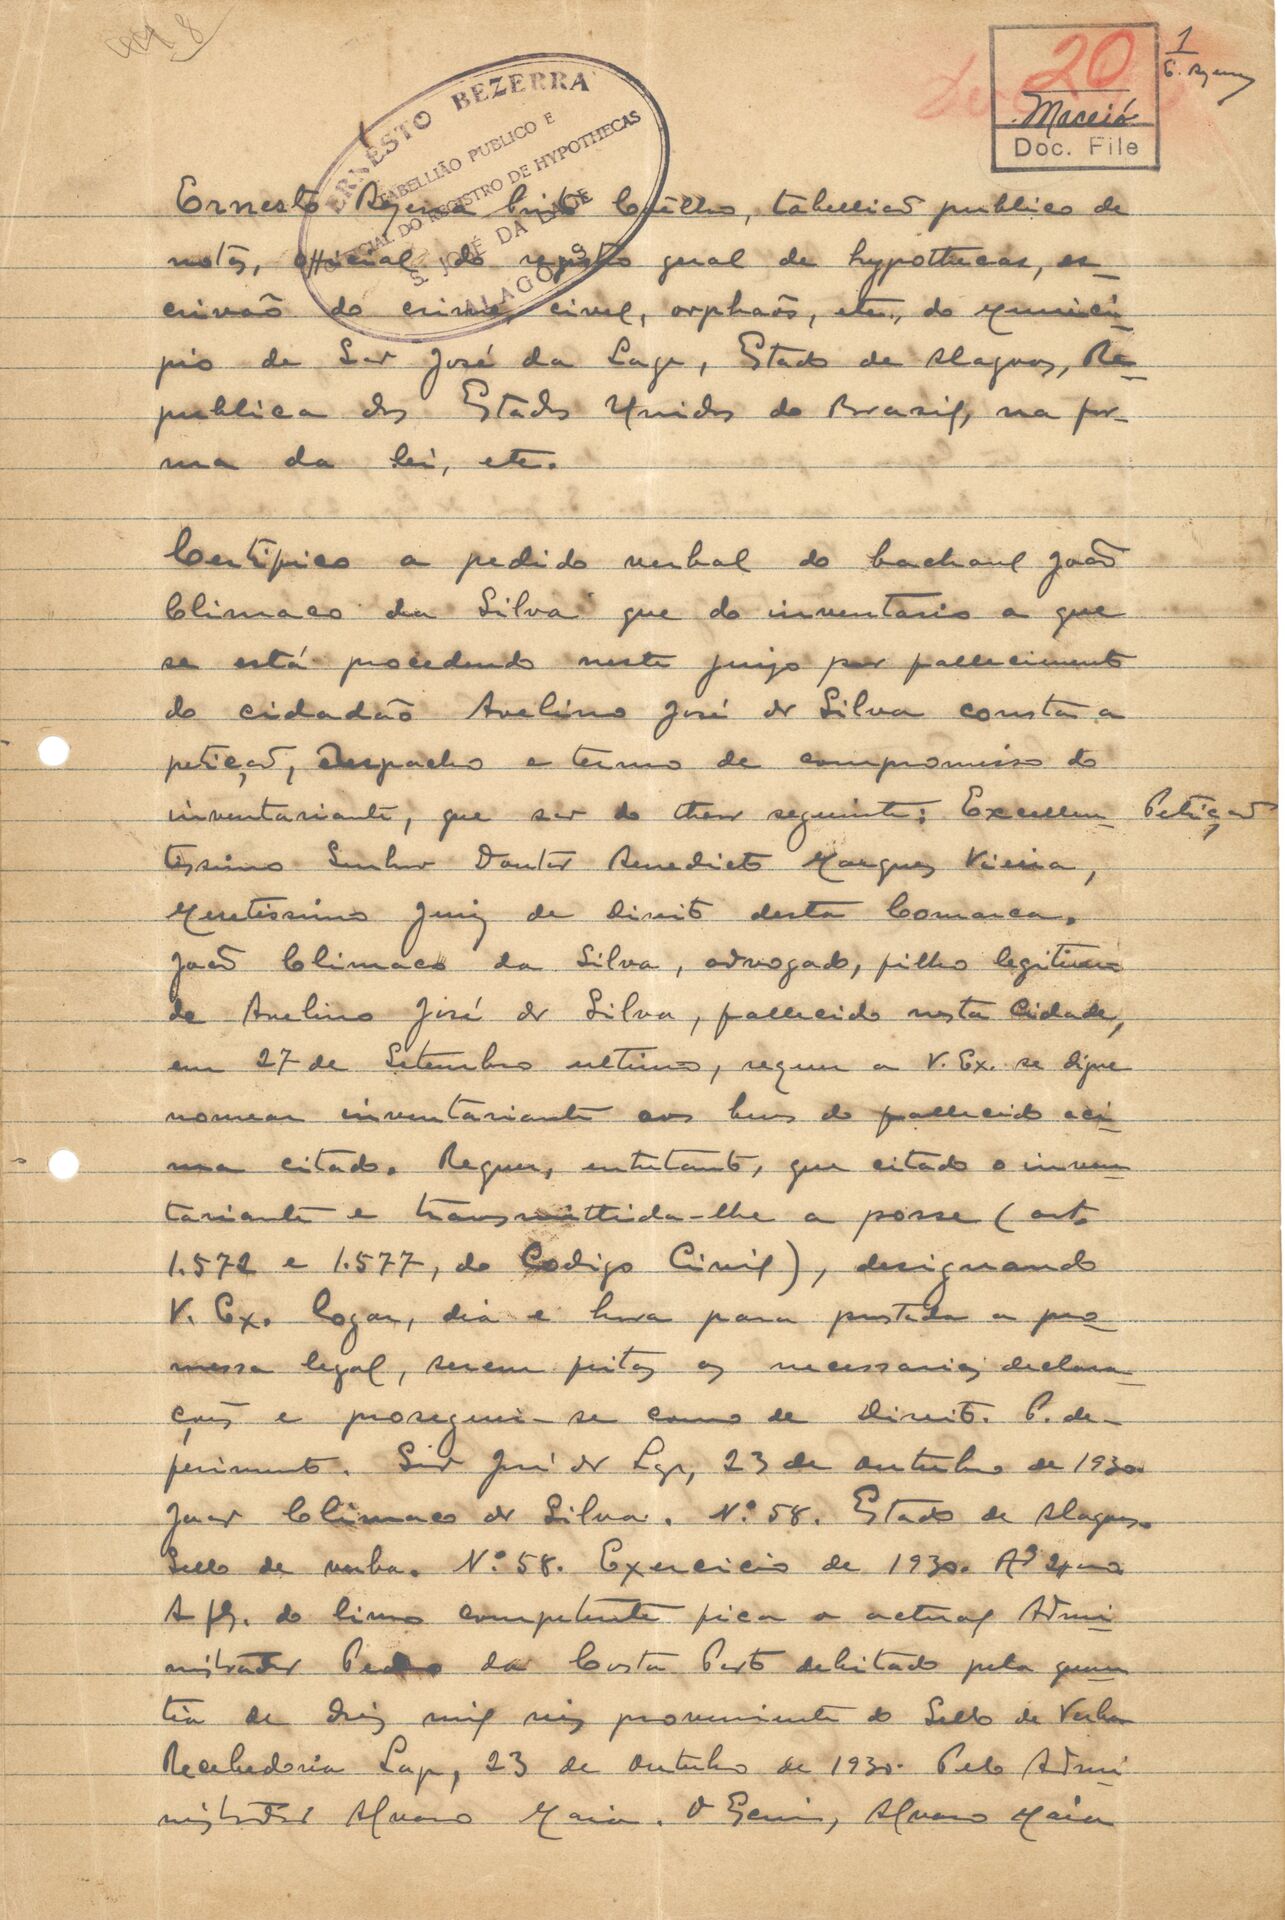 20
Maceió
Doc. File
1
ERNESTO BEZERRA
TABELLIÃO PUBLICO E
OFFICIAL DO REGISTRO DE HYPOTHECAS
S. JOSÉ DA LAGE
ALAGOAS
Ernesto Bezerra Brito Coêlho, tabellião publico de
notas, official do registro geral de hypothecas, es-
crivão do crime, civel, orphãos, etc., do Munici-
pio de São José da Lage, Estado de Alagoas, Re-
publica dos Estados Unidos do Brasil, na for-
ma da lei, etc.
Certifico a pedido verbal do bacharel João
Climaco da Silva que do inventario a que
se está procedendo neste juizo por fallecimento
do cidadão Avelino José da Silva consta a
petição, despacho e termo de compromisso do
inventariante, que são do theor seguinte: Excellen-
Petição
tissimo Senhor Doutor Benedicto Marques Vieira,
Meretissimo Juiz de Direito desta Comarca.
João Climaco da Silva, advogado, filho legitimo
de Avelino José da Silva, fallecido nesta Cidade,
em 27 de Setembro ultimo, requer a V. Ex. se digne
nomear inventariante aos bens do fallecido aci-
ma citado. Requer, entretanto, que citado o inven-
tariante e transmittida-lhe a posse (art.
1.572 e 1.577, do Codigo Civil), designando
V. Ex. logar, dia e hora para prestada a pro-
messa legal, serem feitas as necessarias declara-
ções e proseguir-se como de Direito. P. de-
ferimento. São José da Lage, 23 de Outubro de 1930.
João Climaco da Silva. Nº 58. Estado de Alagoas.
Sello de verba. Nº 58. Exercicio de 1930.
A fls. do livro competente fica o actual Admi-
nistrador Pedro da Costa Porto debitado pela quan-
tia de dois mil reis proveniente do Sello de Verba
Recebedoria Lage, 23 de Outubro de 1930. Pelo Admi-
nistrador Alvaro Maia. O Escrivão, Alvaro Maia